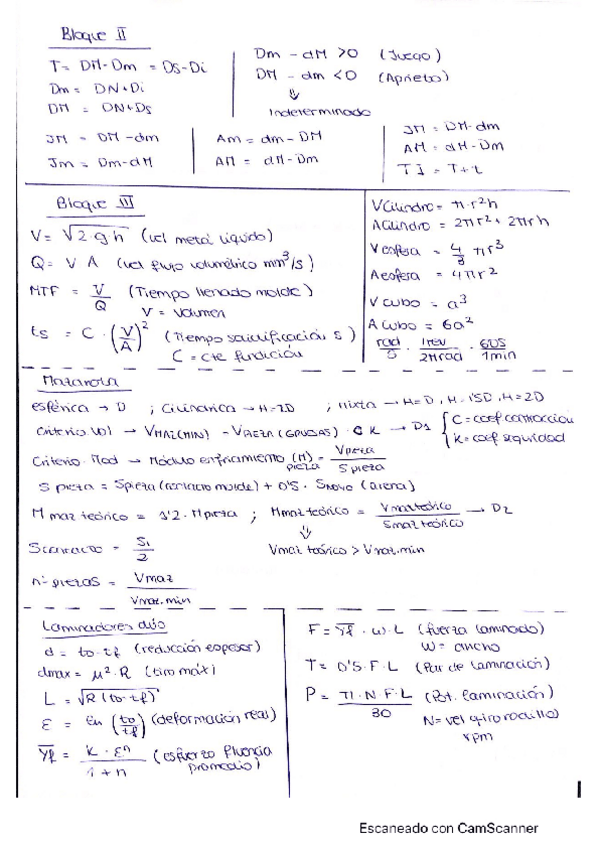 Bloque II
T = DM - Dm = Ds - Di
Dm = DN + Di
DM = DN + Ds
Dm - dM > 0 (Juego)
DM - dm < 0 (Aprieto)
⇓
Indeterminado
JM = DM - dm
Jm = Dm - dM
Am = dm - DM
AM = dM - Dm
JM = DM - dm
AM = dM - Dm
TJ = T + t
Bloque III
V = √2·g·h (vel metal líquido)
Q = V A (vel flujo volumétrico mm³/s)
MTF = V/Q (Tiempo llenado molde)
V = Volumen
ts = C · (V/A)² (Tiempo solidificación, s)
C = cte fundición
Vcilindro = π·r²h
Acilindro = 2πr² + 2πrh
Vesfera = 4/3 πr³
Aesfera = 4πr²
Vcubo = a³
Acubo = 6a²
rad/s · 1rev/2πrad · 60s/1min
Mazarota
esférica → D ; Cilíndrica → H=2D ; Mixta → H=D, H=1'5D, H=2D
Criterio Vol → VMAZ(MIN) - VPIEZA(GRUESAS) · C K → D1 { C = coef contracción
K = coef seguridad
Criterio Mod → Módulo enfriamiento (M) pieza = Vpieza/Spieza
S pieza = Spieza (contacto molde) + 0'5 · Snovo (arena)
M maz teórico = 1'2 · Mpieza ; Mmaz teórico = Vmaz teórico/Smaz teórico → D2
⇓
Vmaz teórico > Vmaz.min
Scontacto = S1/2
nº piezas = Vmaz/Vmaz.min
Laminadores dúo
d = to - tf (reducción espesor)
dmax = μ²·R (tiro máx)
L = √R(to-tf)
ε = ln (to/tf) (deformación real)
Yf = k · εn/1 + n (esfuerzo fluencia promedio)
F = Yf · w · L (fuerza laminado)
w = ancho
T = 0'5 · F · L (Par de laminación)
P = π · N · F · L/30 (Pot. laminación)
N = vel giro rodillo
rpm
Escaneado con CamScanner